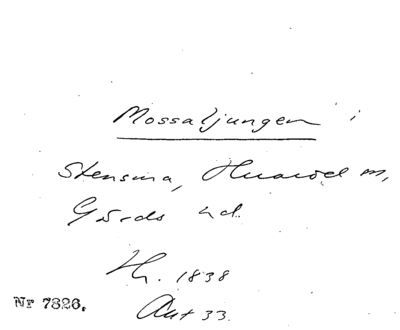 Mossaljungen i
Stensma, Huaröd sn,
Gärds hd.
Th. 1838
Ant 33.
Nr 7826.